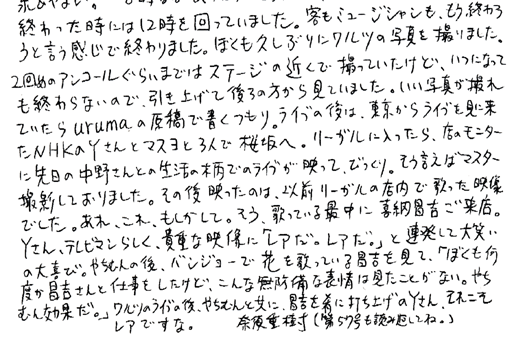 終わった時には12時を回っていました。客もミュージシャンも、もう終わろ
うと言う感じで終わりました。ぼくも久しぶりにワルツの写真を撮りました。
2回めのアンコールぐらいまではステージの近くで撮っていたけど、いつになって
も終わらないので、引き上げて後ろの方から見ていました。いい写真が撮れ
ていたらurumaの原稿で書くつもり。ライブの後は、東京からライブを見に来
たNHKのYさんとマスヨと3人で桜坂へ。リーガルに入ったら、店のモニター
に先日の中野さんとの生活の柄でのライブが映って、びっくり。そう言えばマスター
撮影しておりました。その後映ったのは、以前リーガルの店内で歌った映像
でした。あれ、これ、もしかして。そう、歌っている最中に喜納昌吉ご来店。
Yさん、テレビマンらしく、貴重な映像に「レアだ。レアだ。」と連発して大笑い
の大喜び。やちむんの後、バンジョーで花を歌っている昌吉を見て、「ぼくも何
度か昌吉さんと仕事をしたけど、こんな無防備な表情は見たことがない。やち
むん効果だ。」ワルツのライブの後、やちむんと共に、昌吉を肴に打ち上げのYさん、それこそ
レアですな。 奈須重樹(第57号も読み返してね。)